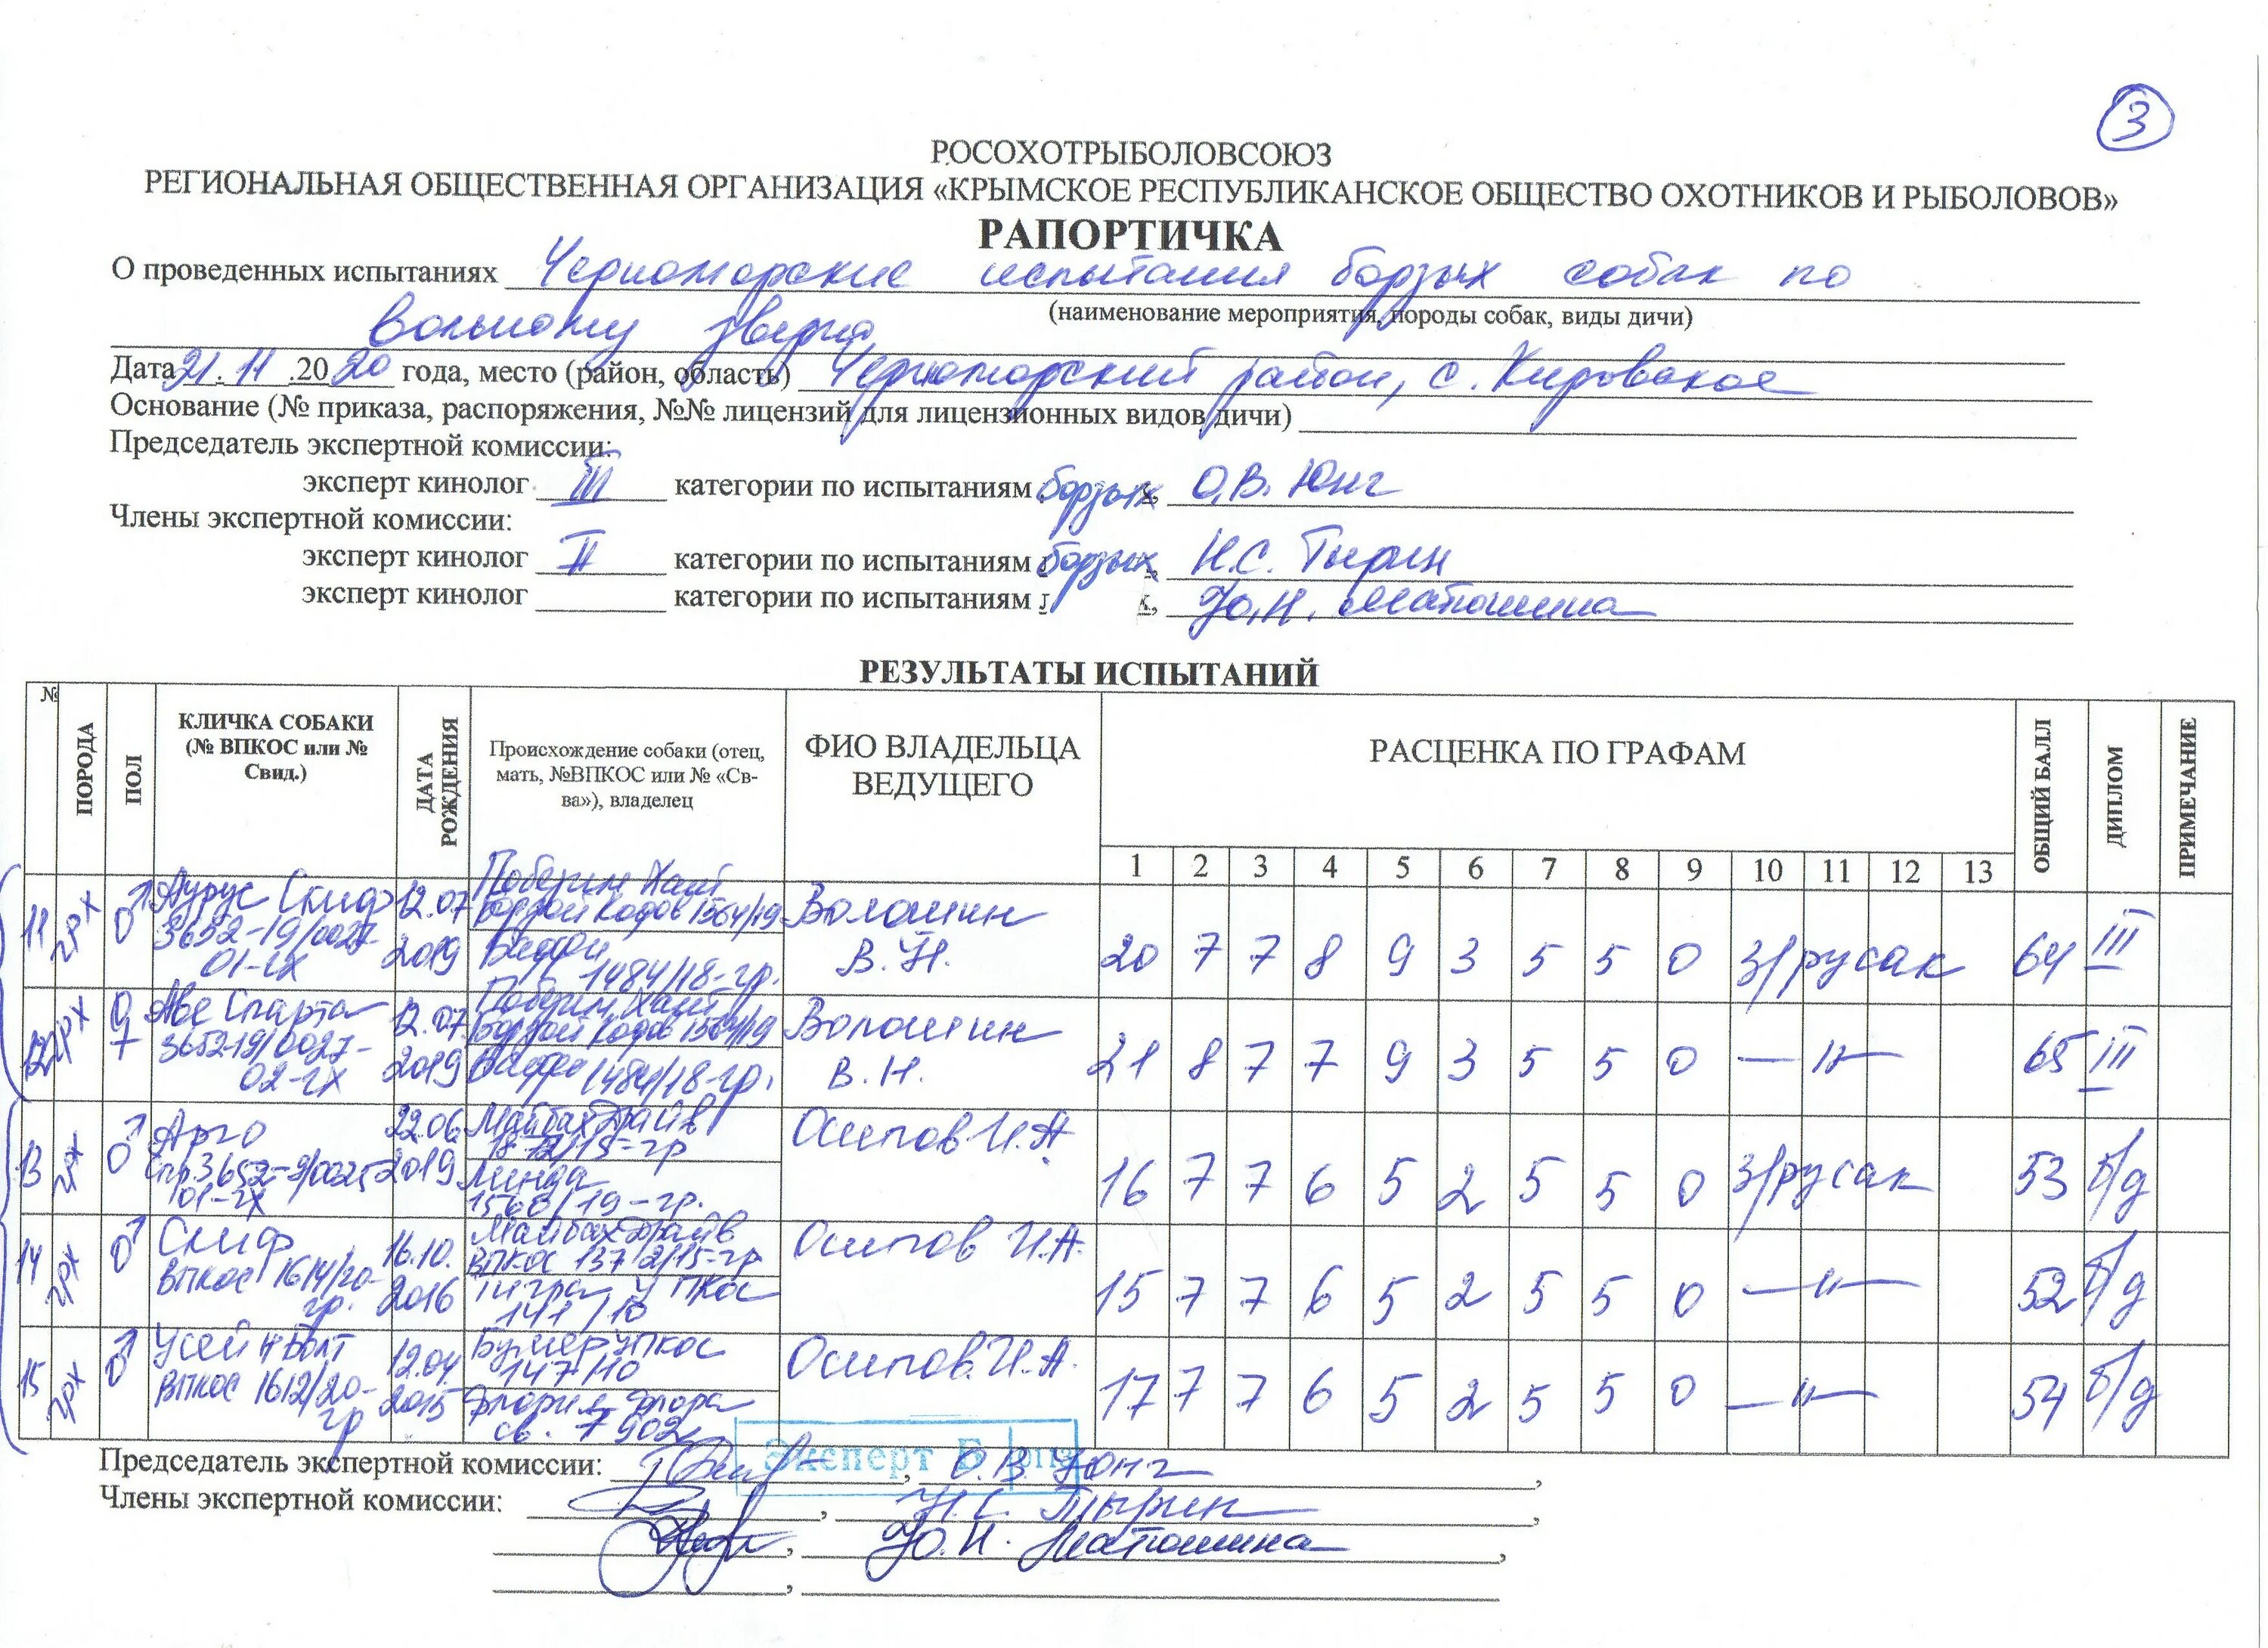 3
РОСОХОТРЫБОЛОВСОЮЗ
РЕГИОНАЛЬНАЯ ОБЩЕСТВЕННАЯ ОРГАНИЗАЦИЯ «КРЫМСКОЕ РЕСПУБЛИКАНСКОЕ ОБЩЕСТВО ОХОТНИКОВ И РЫБОЛОВОВ»
РАПОРТИЧКА
О проведенных испытаниях Черноморские испытания борзых собак по
(наименование мероприятия, породы собак, виды дичи)
вольному зверю
Дата 21.11.2020 года, место (район, область) Черноморский район, с. Кировское
Основание (№ приказа, распоряжения, №№ лицензий для лицензионных видов дичи)
Председатель экспертной комиссии:
эксперт кинолог III категории по испытаниям борзых, О.В. Юнг
Члены экспертной комиссии:
эксперт кинолог II категории по испытаниям борзых, Н.С. Тырин
эксперт кинолог категории по испытаниям Ю.Н. Матюшина
РЕЗУЛЬТАТЫ ИСПЫТАНИЙ
№ ПОРОДА ПОЛ КЛИЧКА СОБАКИ (№ ВПКОС или № Свид.) ДАТА РОЖДЕНИЯ Происхождение собаки (отец, мать, №ВПКОС или № «Св-ва»), владелец ФИО ВЛАДЕЛЬЦА ВЕДУЩЕГО РАСЦЕНКА ПО ГРАФАМ ОБЩИЙ БАЛЛ ДИПЛОМ ПРИМЕЧАНИЕ
1 2 3 4 5 6 7 8 9 10 11 12 13
11 грх ♂ Аурус Скиф 3652-19/0027-01-гх 12.07 2019 1564/19 1484/18-гр. Волошин В.Н. 20 7 7 8 9 3 5 5 0 з/русак 64 III
12 грх ♀ Аве Спарта 3652-19/0027-02-гх 12.07. 2019 1564/19 1484/18-гр. Волошин В.Н. 21 8 7 7 9 3 5 5 0 —"— 65 III
13 грх ♂ Арго 01-гх 22.06. 2019 Майбах Драйв Линда 1568/19-гр. Осипов И.А. 16 7 7 6 5 2 5 5 0 з/русак 53 б/д
14 грх ♂ Скиф ВПКОС 1614/20-гр. 16.10. 2016 Майбах Драйв ВПКОС 1372/15-гр Тигра УПКОС 141/10 Осипов И.А. 15 7 7 6 5 2 5 5 0 —"— 52 б/д
15 грх ♂ Усейн Болт ВПКОС 1612/20-гр 12.04. 2015 Бумер УПКОС 147/10 Флора св. 7902 Осипов И.А. 17 7 7 6 5 2 5 5 0 —"— 54 б/д
Эксперт
Председатель экспертной комиссии: , О.В. Юнг,
Члены экспертной комиссии: , Н.С. Тырин,
, Ю.Н. Матюшина,